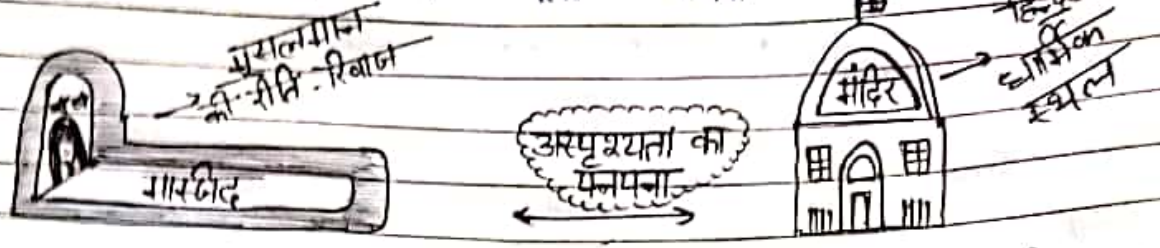 मुसलमान
की रीति-रिवाज
मास्जीद
अस्पृश्यता का
पनपना
मंदिर
हिन्दू
धार्मिक
स्थल